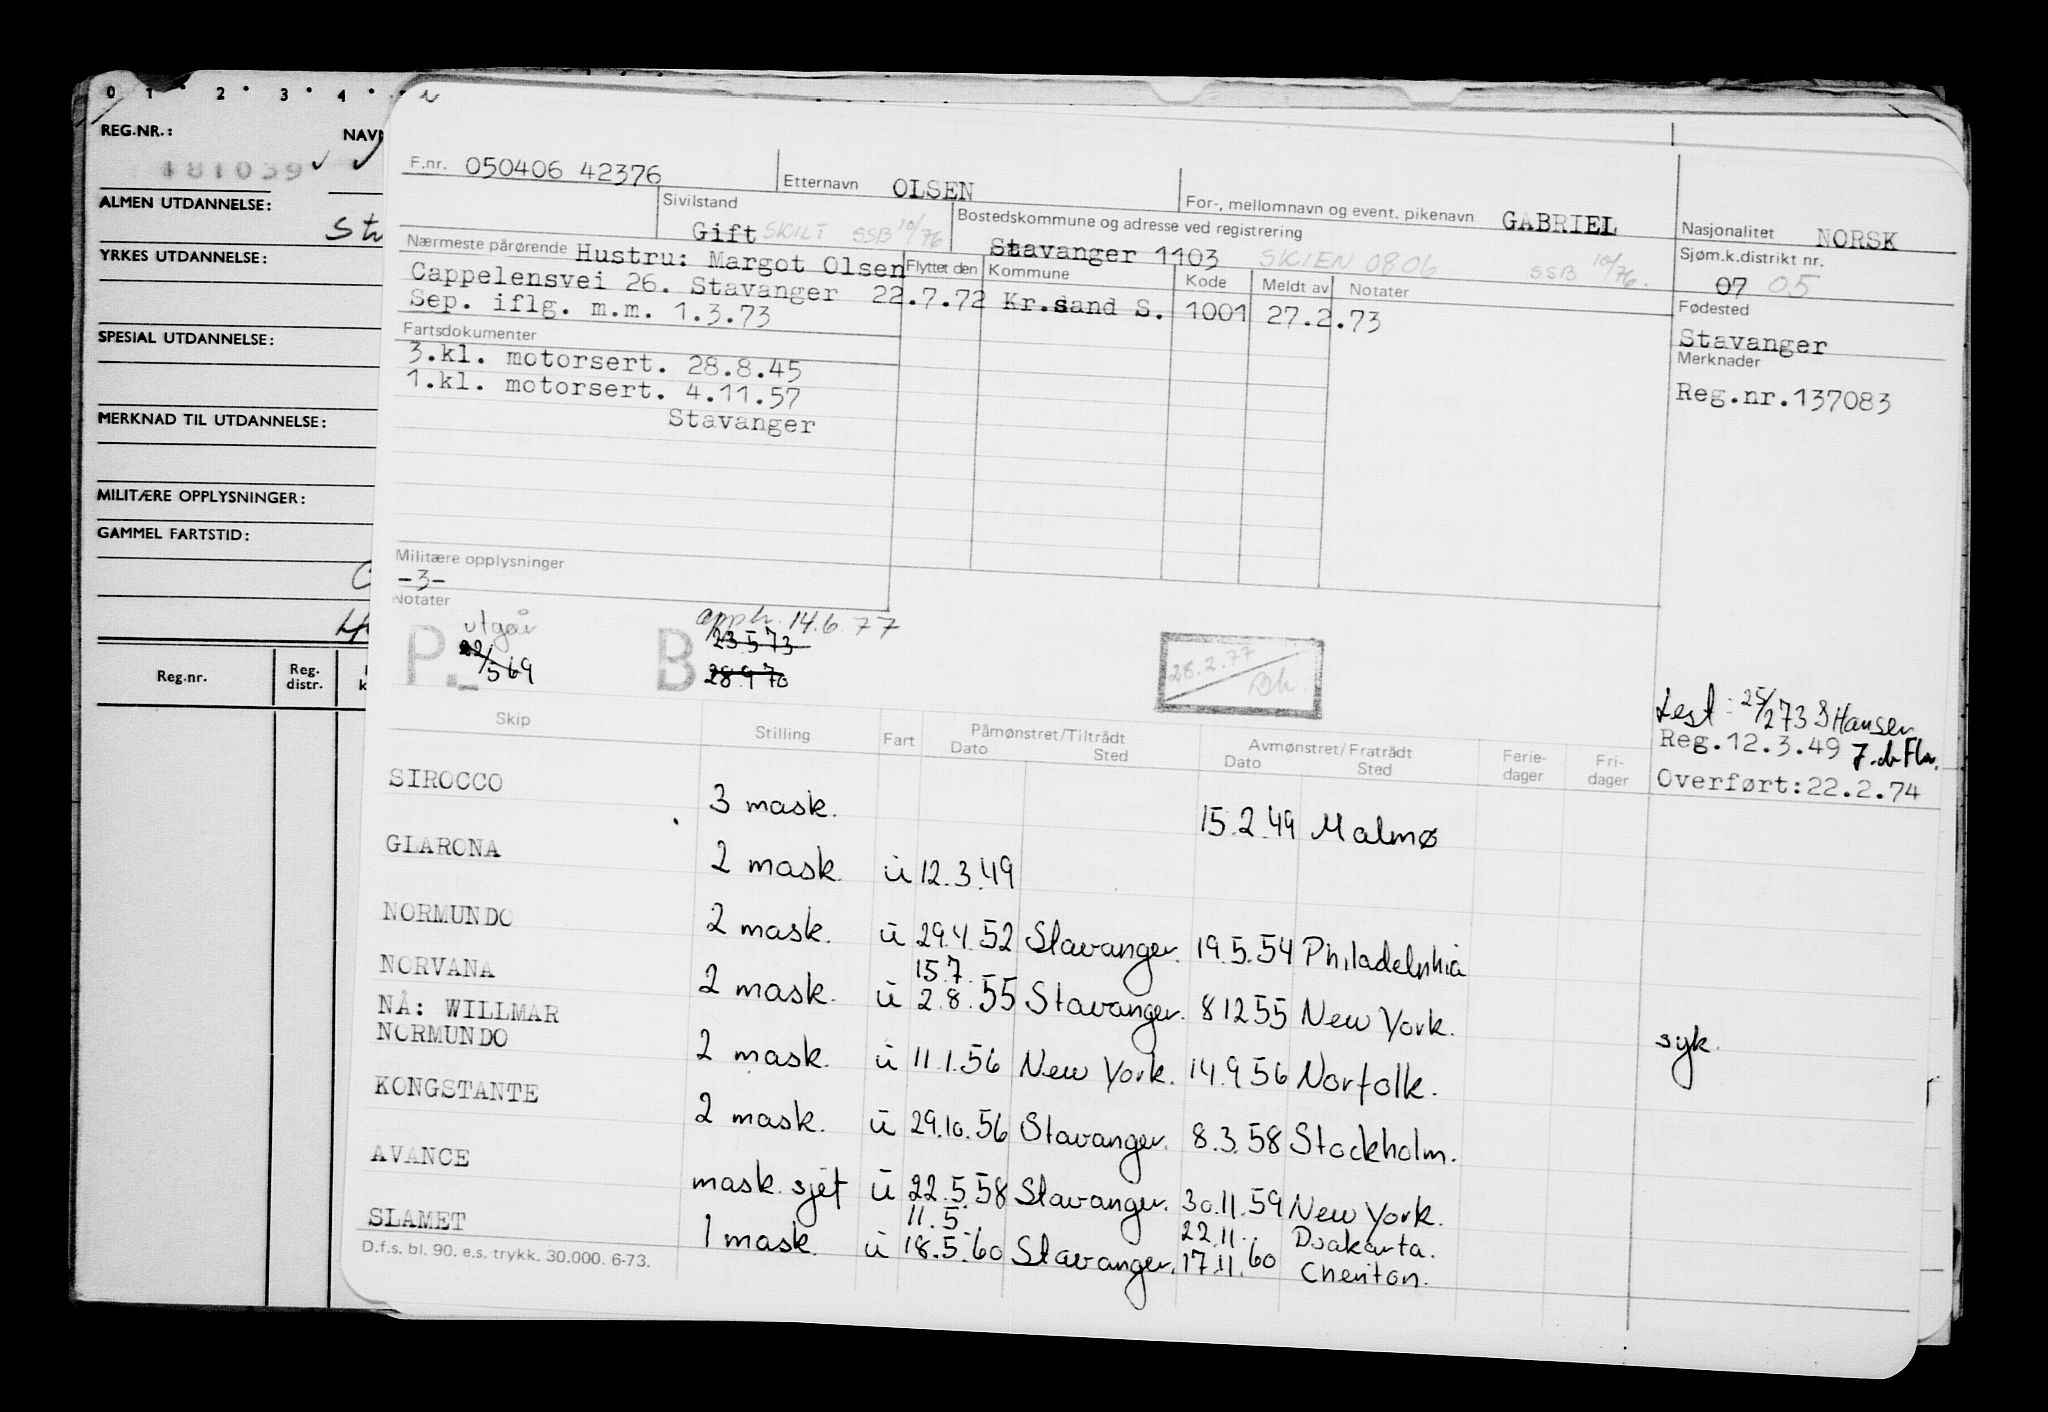 0 1 2 3 4
REG.NR.:
NAV
181039
ALMEN UTDANNELSE:
YRKES UTDANNELSE:
SPESIAL UTDANNELSE:
MERKNAD TIL UTDANNELSE:
MILITÆRE OPPLYSNINGER:
GAMMEL FARTSTID:
Reg.nr.
Reg. distr.
F.nr. 050406 42376
Etternavn OLSEN
For-, mellomnavn og event. pikenavn GABRIEL
Nasjonalitet NORSK
Sivilstand
Gift SKILT SSB 10/76
Bostedskommune og adresse ved registrering
Stavanger 1103 SKIEN 0806 SSB 10/76.
Sjøm.k.distrikt nr.
07 05
Nærmeste pårørende Hustru: Margot Olsen
Cappelensvei 26. Stavanger
Sep. iflg. m.m. 1.3.73
Flyttet den Kommune Kode Meldt av Notater
22.7.72 Kr.sand S. 1001 27.2.73
Fødested
Stavanger
Merknader
Reg.nr.137083
Fartsdokumenter
3.kl. motorsert. 28.8.45
1.kl. motorsert. 4.11.57
Stavanger
Militære opplysninger
-3-
Notater
P. utgår
22/5 69
B opph. 14.6.77
23.5.73
28.9.70
28.2.77
Test: 25/2 73 S Hansen
Reg.12.3.49
Overført:22.2.74
Skip Stilling Fart Påmønstret/Tiltrådt Avmønstret/Fratrådt Ferie- dager Fri- dager
Dato Sted Dato Sted
SIROCCO 3 mask. 15.2.49 Malmø
GLARONA 2 mask. ü 12.3.49
NORMUNDO 2 mask. ü 29.4.52 Stavanger. 19.5.54 Philadelphia
15.7.
NORVANA 2 mask. ü 2.8.55 Stavanger. 8 12 55 New York. syk.
NÅ: WILLMAR
NORMUNDO 2 mask. ü 11.1.56 New York. 14.9 56 Norfolk.
KONGSTANTE 2 mask. ü 29.10.56 Stavanger. 8.3.58 Stockholm.
AVANCE mask. sjef ü 22.5.58 Stavanger. 30.11.59 New York.
11.5. 22.11. Djakarta.
SLAMET 1 mask. ü 18.5.60 Stavanger. 17.11.60 Cheriton.
D.f.s. bl. 90. e.s. trykk. 30.000. 6-73.